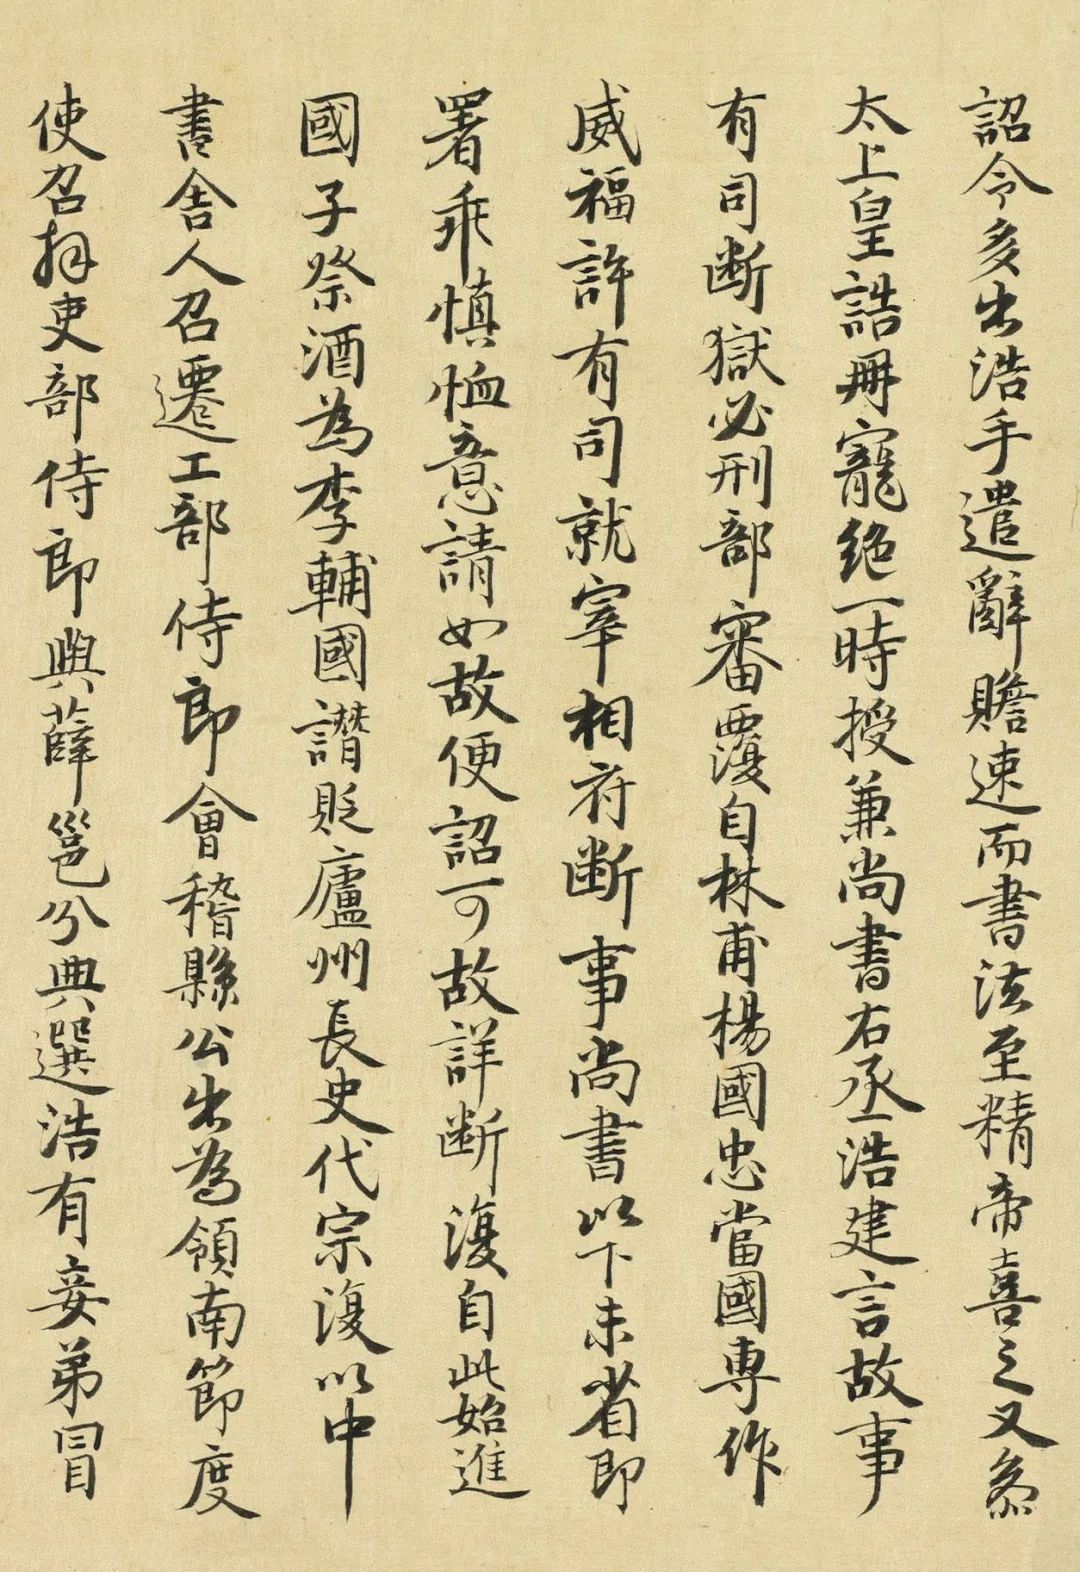 詔令多出浩手遣辭贍速而書法至精帝喜之又參
太上皇誥冊寵絕一時授兼尚書右丞浩建言故事
有司断獄必刑部審覆自林甫楊國忠當國專作
威福許有司就宰相府断事尚書以下未省即
署乖慎恤意請如故便詔可故詳断復自此始進
國子祭酒為李輔國譖貶廬州長史代宗復以中
書舍人召遷工部侍郎會稽縣公出為領南節度
使召拜吏部侍郎與薛邕分典選浩有妾弟冒